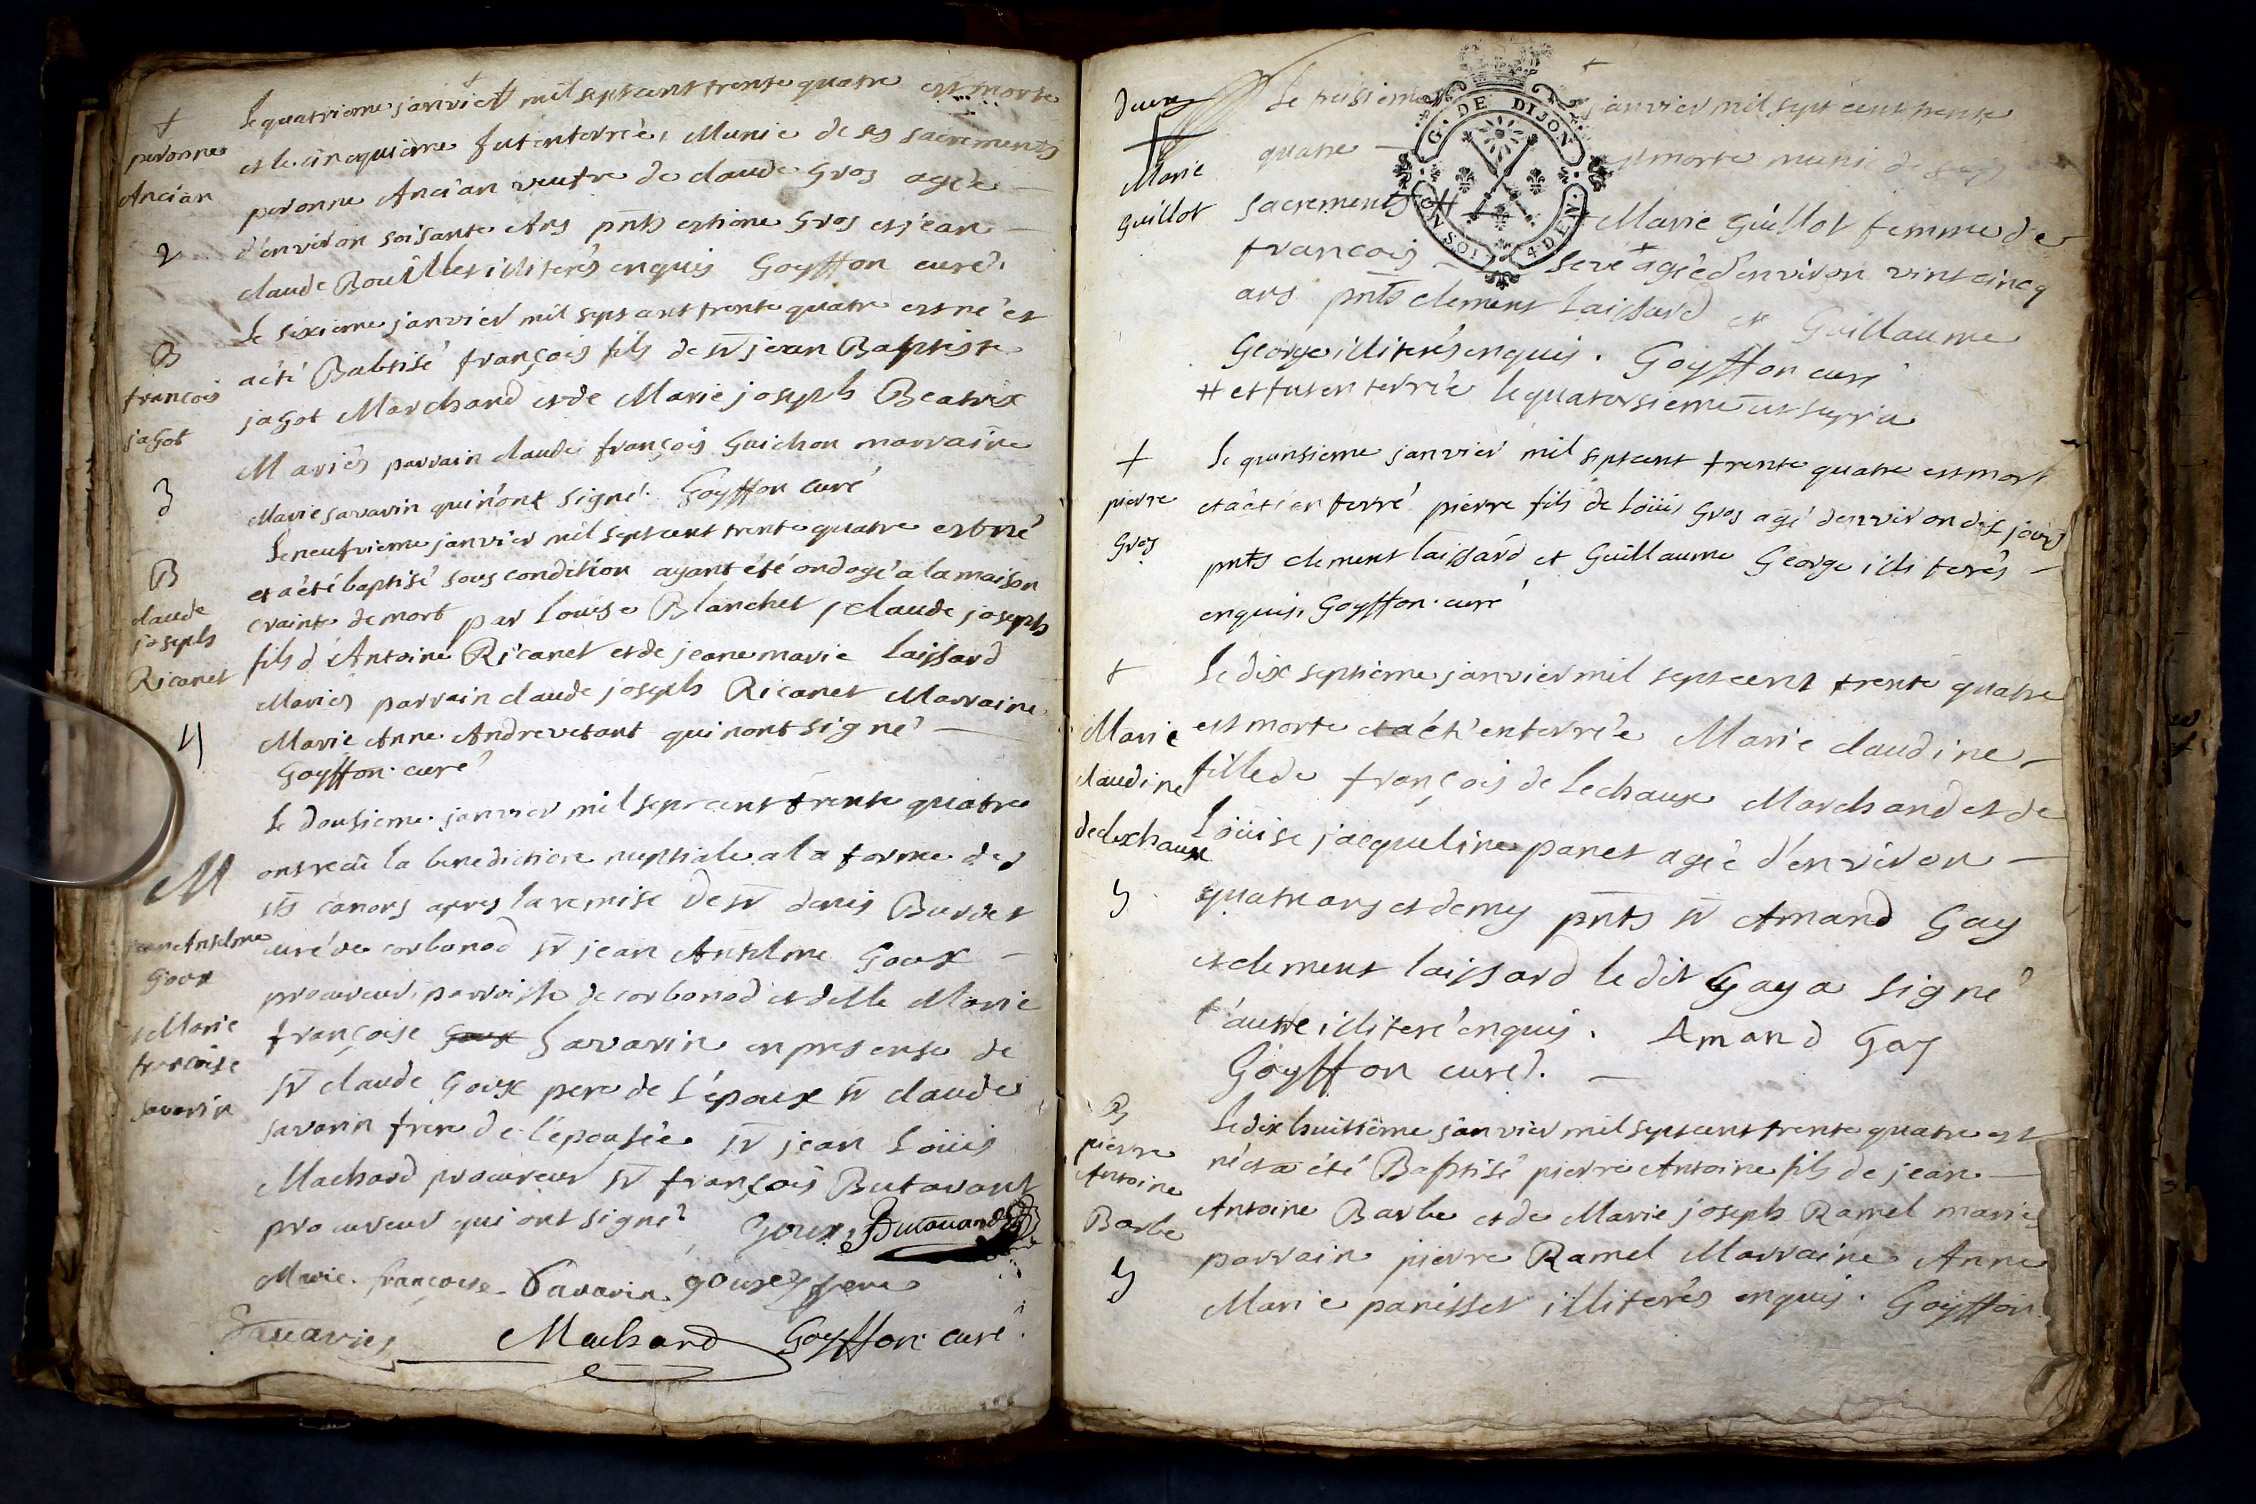 Le quatrieme janvier mil sept cent trente quatre est morte
et le cincquieme fut enterreé, Munie de ses sacrements
peronne Ancian veufve de claude Gros ageé
d'environ soisante Ans pnts estiene Gros et jean
claude Bouillet illiterés enquis Goyffon curé.
+
peronne
Ancian
2
Le sixieme janvier mil sept cent trente quatre est né et
a été Babtisé françois fils de sr jean Baptiste
jagot Marchand et de Marie joseph Beatrix
Mariés parrain claude françois Guichon marraine
Marie savarin qui n'ont signé. Goyffon curé
B
françois
jagot
3
Le neufvieme janvier mil sept cent trente quatre est né
et a été baptisé sous condition ayant été ondoyé a la maison
crainte de mort par Louise Blanchet, claude joseph
fils d'Antoine Ricanet et de jeane marie Laissard
Mariés parrain claude joseph Ricanet Marraine
Marie Anne Andrevetant qui n'ont signé
Goyffon curé
B
claude
joseph
Ricanet
4
Le dousieme janvier mil sept cent trente quatre
ont receü la benediction nuptiale a la forme des
sts canons apres la remise de sr denis Burdet
curé de corbonod sr jean Antelme Goux
procureur, parroisse de corbonod et delle Marie
françoise Goux Savarin en presense de
sr claude Goux pere de L'époux sr claude
savarin frere de l'epouseé sr jean Loüis
Machard procureur sr françois Butavant
procureur qui ont signé Goux, Butavand
Marie françoise Savarin goux pere
Savarin Machard Goyffon curé
M
jean Antelme
Goux
et Marie
françoise
savarin
Le treisieme janvier mil sept cent trente
quatre est morte muni de ses
sacrements # Marie Guillot femme de
françois sevé ageé d'environ vint cincq
ans pnts clement Laissard et Guillaume
George illiterés enquis. Goyffon curé
# et fut enterreé le quatorsieme ut supra
G. DE DIJON
4 DEN.
Marie
Guillot
Le quinsieme janvier mil sept cent trente quatre est mort
et a été enterré pierre fils de Loüis Gros agé d'environ dix jours
pnts clement laissard et Guillaume George illiterés
enquis, Goyffon curé
+
pierre
Gros
Le dix septieme janvier mil sept cent trente quatre
est morte et a été enterreé Marie claudine
fille de françois de Lechaux Marchand et de
Loüise jacqueline panet ageé d'environ
quatre ans et demy pnts sr Amand Gay
et clement laissard le dit Gay a signé
l'autre illiteré enquis. Amand Gay
Goyffon curé.
+
Marie
claudine
delechaux
5
Le dix huitieme janvier mil sept cent trente quatre est
né et a été Baptisé pierre Antoine fils de jean
Antoine Barbe et de Marie joseph Ramel mariés
parrain pierre Ramel Marraine Anne
Marie panisset illiterés enquis. Goyffon
B
pierre
Antoine
Barbe
5